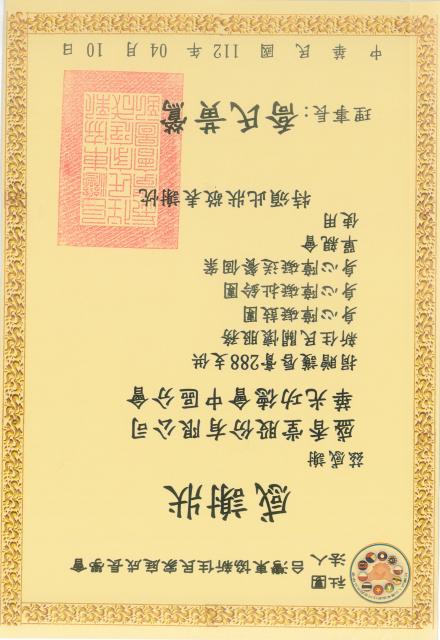 社團
法人
台灣東協新住民家庭成長學會
感謝狀
茲感謝
盛香堂股份有限公司
華光功德會中區分會
捐贈護唇膏288支供
新住民關懷服務
身心障礙鼓團
身心障礙扯鈴團
身心障礙送餐個案
單親會
使用
特頒此狀敬表謝忱
理事長：喬氏黃鶯
中華民國 112 年 04 月 10 日